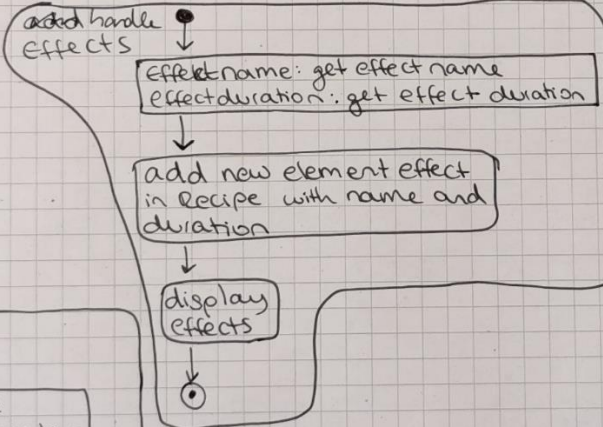 add handle
effects
Effektname: get effect name
effectduration: get effect duration
add new element effect
in Recipe with name and
duration
display
effects